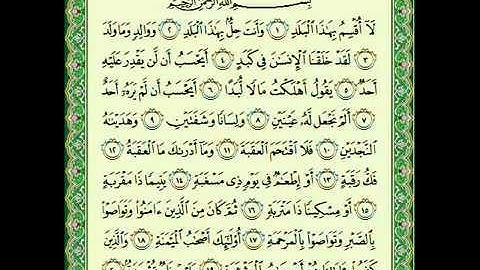 بِسْمِ ٱللَّهِ ٱلرَّحْمَٰنِ ٱلرَّحِيمِ
لَآ أُقْسِمُ بِهَٰذَا ٱلْبَلَدِ ١ وَأَنتَ حِلٌّۢ بِهَٰذَا ٱلْبَلَدِ ٢ وَوَالِدٍ وَمَا وَلَدَ
٣ لَقَدْ خَلَقْنَا ٱلْإِنسَٰنَ فِي كَبَدٍ ٤ أَيَحْسَبُ أَن لَّن يَقْدِرَ عَلَيْهِ
أَحَدٌ ٥ يَقُولُ أَهْلَكْتُ مَالًا لُّبَدًا ٦ أَيَحْسَبُ أَن لَّمْ يَرَهُۥٓ أَحَدٌ
٧ أَلَمْ نَجْعَل لَّهُۥ عَيْنَيْنِ ٨ وَلِسَانًا وَشَفَتَيْنِ ٩ وَهَدَيْنَٰهُ
ٱلنَّجْدَيْنِ ١٠ فَلَا ٱقْتَحَمَ ٱلْعَقَبَةَ ١١ وَمَآ أَدْرَىٰكَ مَا ٱلْعَقَبَةُ ١٢
فَكُّ رَقَبَةٍ ١٣ أَوْ إِطْعَٰمٌ فِي يَوْمٍ ذِي مَسْغَبَةٍ ١٤ يَتِيمًا ذَا مَقْرَبَةٍ
١٥ أَوْ مِسْكِينًا ذَا مَتْرَبَةٍ ١٦ ثُمَّ كَانَ مِنَ ٱلَّذِينَ ءَامَنُوا۟ وَتَوَاصَوْا۟
بِٱلصَّبْرِ وَتَوَاصَوْا۟ بِٱلْمَرْحَمَةِ ١٧ أُو۟لَٰٓئِكَ أَصْحَٰبُ ٱلْمَيْمَنَةِ ١٨ وَٱلَّذِينَ